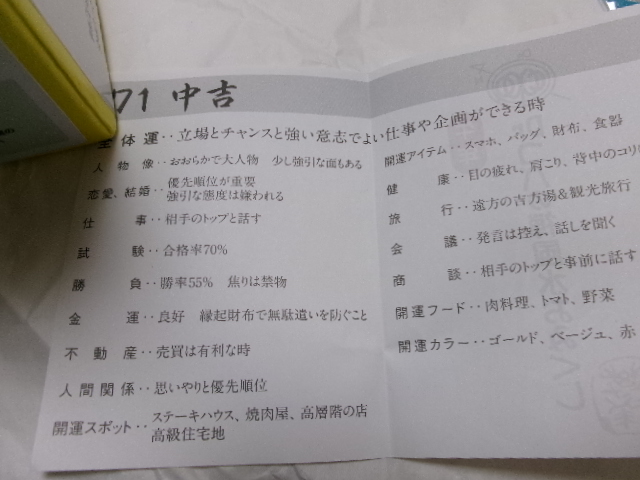 71 中吉
全体運‥立場とチャンスと強い意志でよい仕事や企画ができる時
人物像‥おおらかで大人物 少し強引な面もある
恋愛、結婚‥優先順位が重要
強引な態度は嫌われる
仕事‥相手のトップと話す
試験‥合格率70%
勝負‥勝率55% 焦りは禁物
金運‥良好 縁起財布で無駄遣いを防ぐこと
不動産‥売買は有利な時
人間関係‥思いやりと優先順位
開運スポット‥ステーキハウス、焼肉屋、高層階の店
高級住宅地
開運アイテム‥スマホ、バッグ、財布、食器
健康‥目の疲れ、肩こり、背中のコリ
旅行‥遠方の吉方湯&観光旅行
会議‥発言は控え、話しを聞く
商談‥相手のトップと事前に話す
開運フード‥肉料理、トマト、野菜
開運カラー‥ゴールド、ベージュ、赤